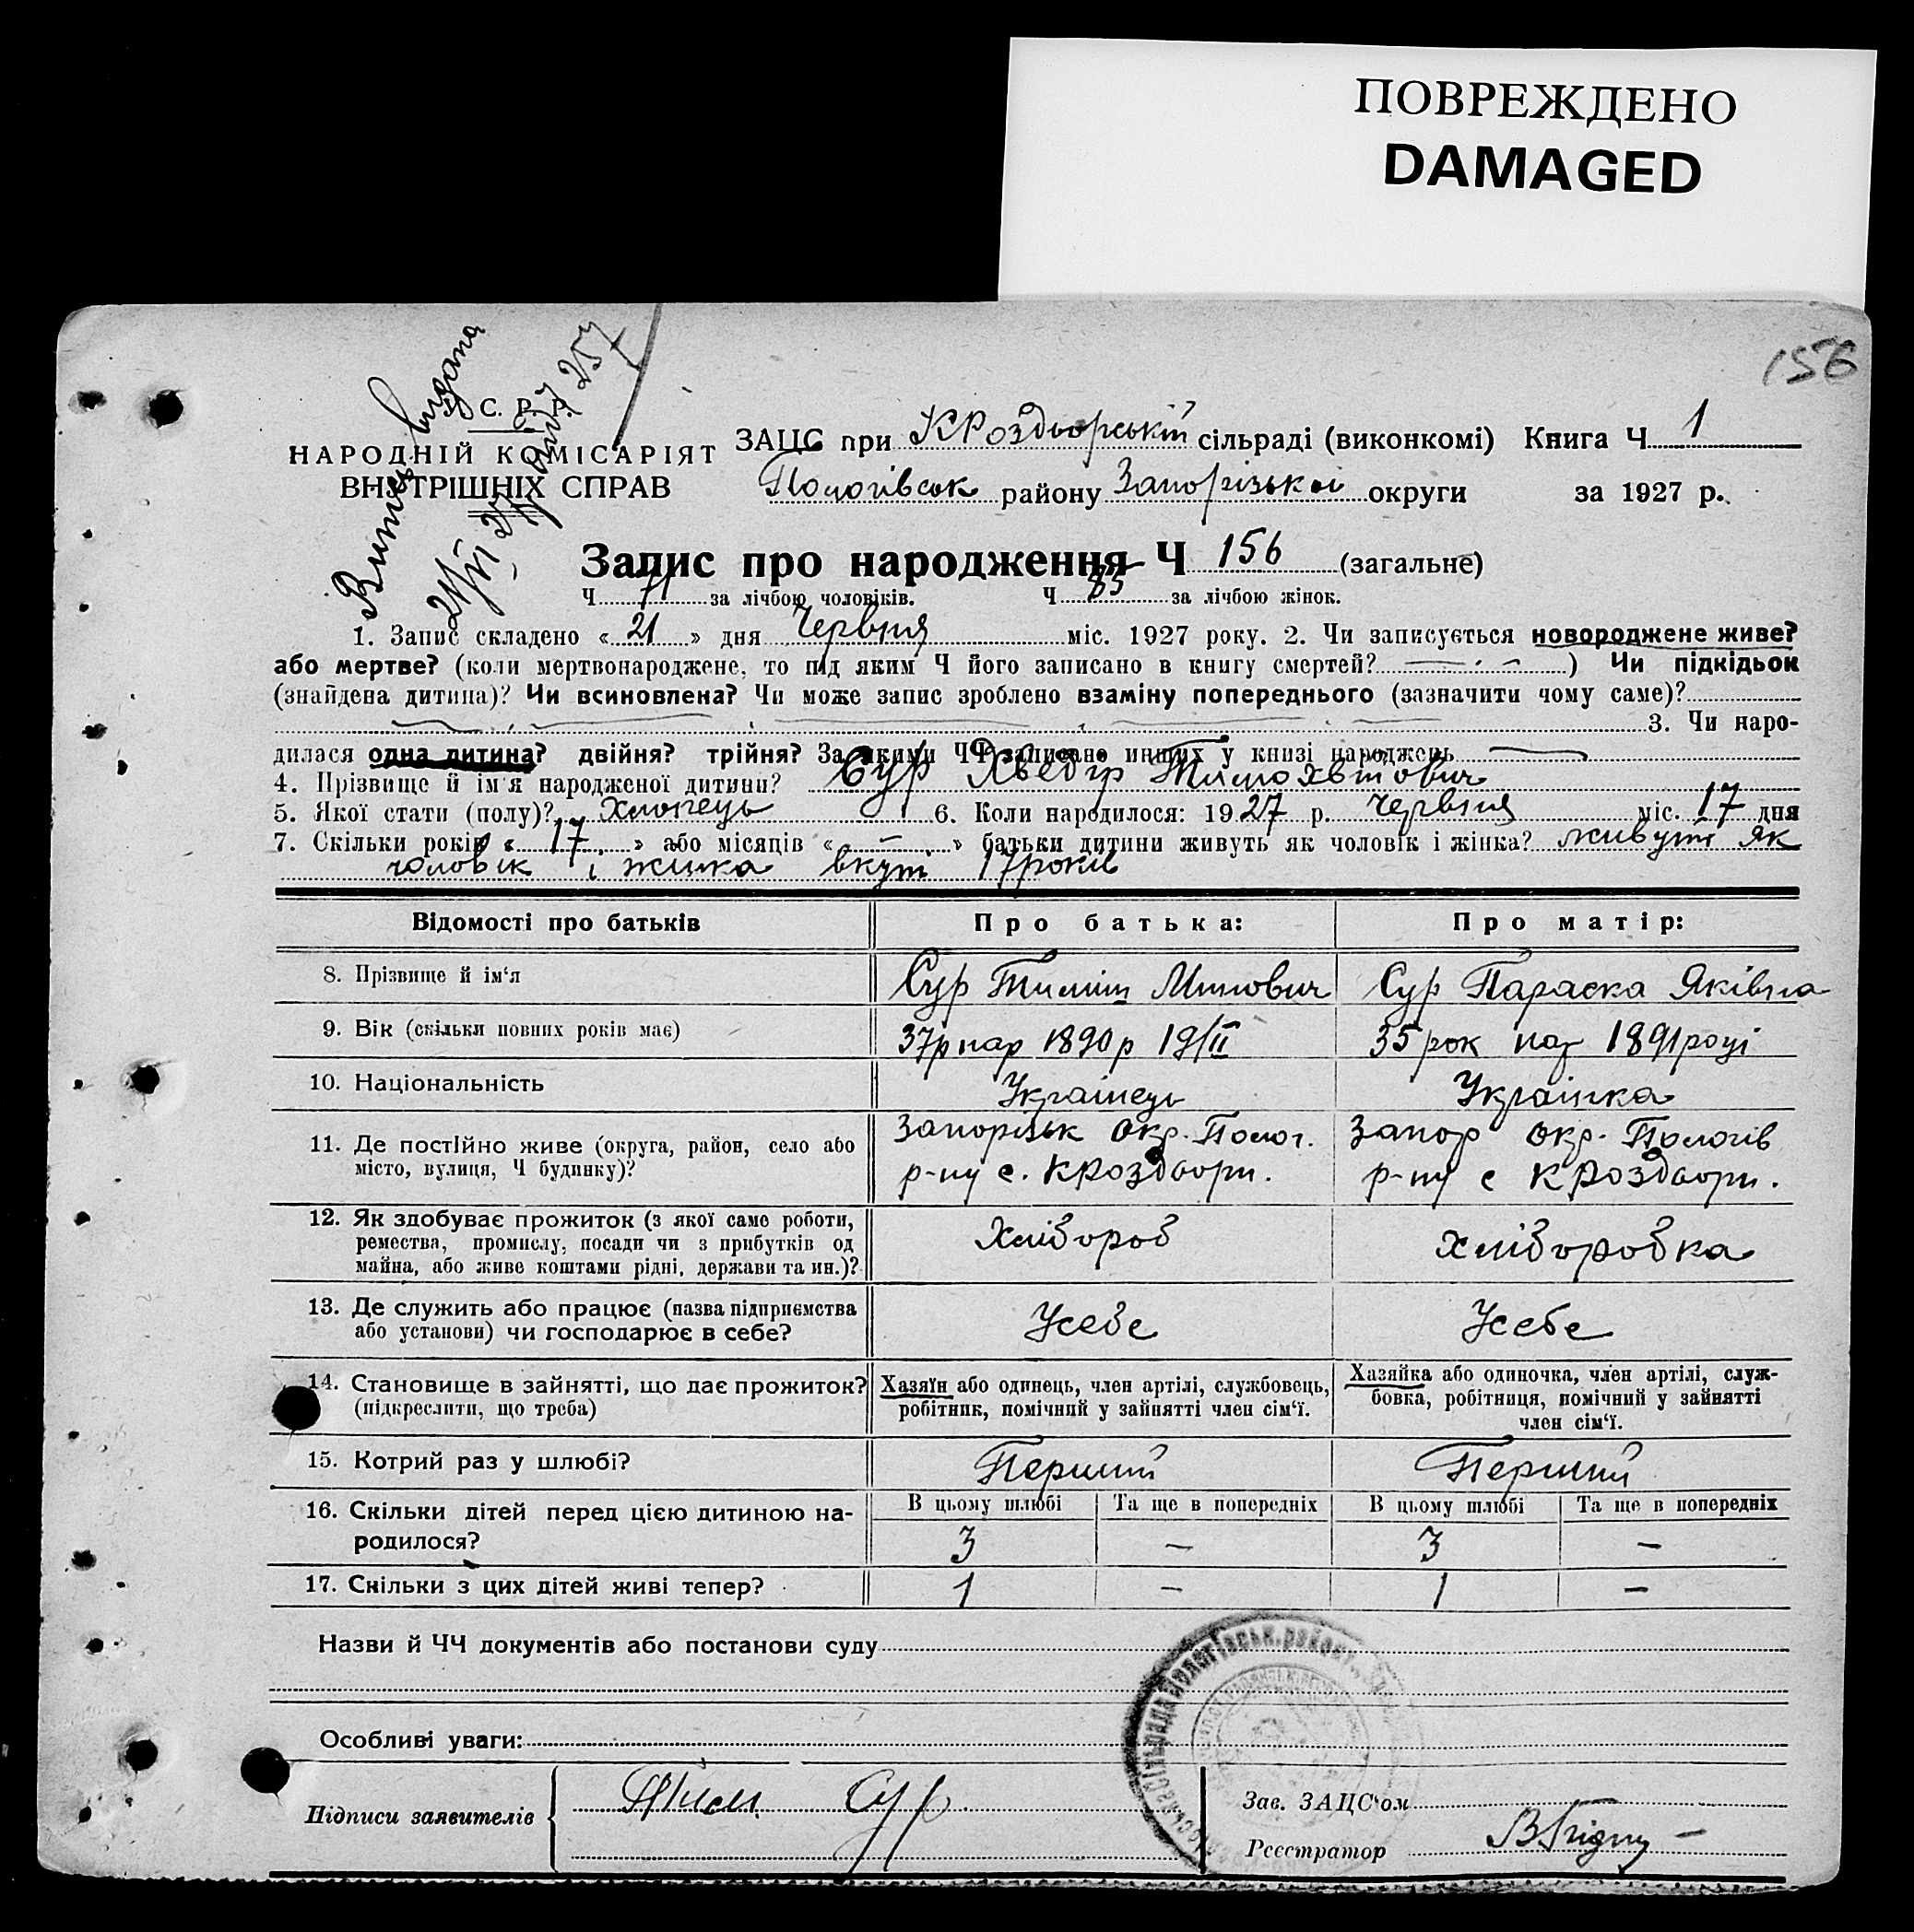 ПОВРЕЖДЕНО
DAMAGED
156
У. С. Р. Р.
НАРОДНІЙ КОМІСАРІЯТ
ВНУТРІШНІХ СПРАВ
Витяг видана
21/VI 27 р.
ЗАЦС при КРоздворській сільраді (виконкомі) Книга Ч. 1
Пологівськ району Запорізької округи за 1927 р.
Запис про народження Ч 156 (загальне)
Ч 71 за лічбою чоловіків. Ч 85 за лічбою жінок.
1. Запис складено « 21 » дня Червня міс. 1927 року. 2. Чи записується новороджене живе?
або мертве? (коли мертвонароджене, то під яким Ч його записано в книгу смертей? — · —) Чи підкідьок
(знайдена дитина)? Чи всиновлена? Чи може запис зроблено взаміну попереднього (зазначити чому саме)?
3. Чи наро-
дилася одна дитина? двійня? трійня? За якими ЧЧ записано инших у книзі народжень —
4. Прізвище й ім'я народженої дитини? Сур Хведір Тимохвтович
5. Якої стати (полу)? Хлопець 6. Коли народилося: 1927 р. Червня міс. 17 дня
7. Скільки років « 17 » або місяців « — » батьки дитини живуть як чоловік і жінка? живуть як
чоловік і жінка вкупі 17 років
Відомості про батьків Про батька: Про матір:
8. Прізвище й ім'я Сур Тиміш Минович Сур Параска Яківна
9. Вік (скільки повних років має) 37р нар 1890р 19/II 35 рок нар 1891 році
10. Національність Українець Українка
11. Де постійно живе (округа, район, село або місто, вулиця, Ч будинку)? Запорізьк Окр. Полог. р-ну с. КРоздори. Запор Окр. Пологів р-ну с КРоздори.
12. Як здобуває прожиток (з якої саме роботи, ремества, промислу, посади чи з прибутків од майна, або живе коштами рідні, держави та ин.)? Хлібороб Хліборобка
13. Де служить або працює (назва підприємства або установи) чи господарює в себе? Усебе Усебе
14. Становище в зайнятті, що дає прожиток? (підкреслити, що треба) Хазяїн або одинець, член артілі, службовець, робітник, помічний у зайнятті член сім'ї. Хазяйка або одиночка, член артілі, служ-бовка, робітниця, помічний у зайнятті член сім'ї.
15. Котрий раз у шлюбі? Перший Перший
16. Скільки дітей перед цією дитиною на-родилося? В цьому шлюбі Та ще в попередніх В цьому шлюбі Та ще в попередніх
3 — 3 —
17. Скільки з цих дітей живі тепер? 1 — 1 —
Назви й ЧЧ документів або постанови суду
Особливі уваги:
Підписи заявителів Тим Сур
Зав. ЗАЦС'ом
Реєстратор